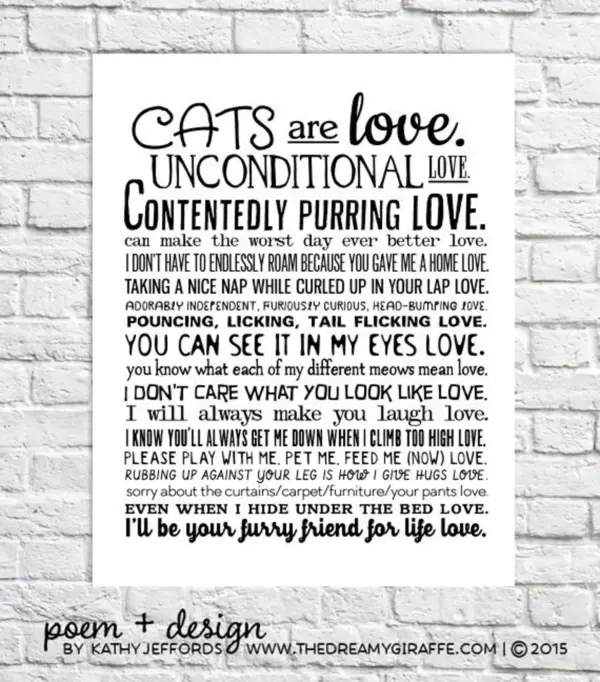 CATS are love.
UNCONDITIONAL LOVE.
CONTENTEDLY PURRING LOVE.
can make the worst day ever better love.
I DON'T HAVE TO ENDLESSLY ROAM BECAUSE YOU GAVE ME A HOME LOVE.
TAKING A NICE NAP WHILE CURLED UP IN YOUR LAP LOVE.
ADORABLY INDEPENDENT, FURIOUSLY CURIOUS, HEAD-BUMPING LOVE.
POUNCING, LICKING, TAIL FLICKING LOVE.
YOU CAN SEE IT IN MY EYES LOVE.
you know what each of my different meows mean love.
I DON'T CARE WHAT YOU LOOK LIKE LOVE.
I will always make you laugh love.
I KNOW YOU'LL ALWAYS GET ME DOWN WHEN I CLIMB TOO HIGH LOVE.
PLEASE PLAY WITH ME, PET ME, FEED ME (NOW) LOVE.
RUBBING UP AGAINST YOUR LEG IS HOW I GIVE HUGS LOVE.
sorry about the curtains/carpet/furniture/your pants love.
EVEN WHEN I HIDE UNDER THE BED LOVE.
I'll be your furry friend for life love.
poem + design
BY KATHY JEFFORDS WWW.THEDREAMYGIRAFFE.COM | © 2015